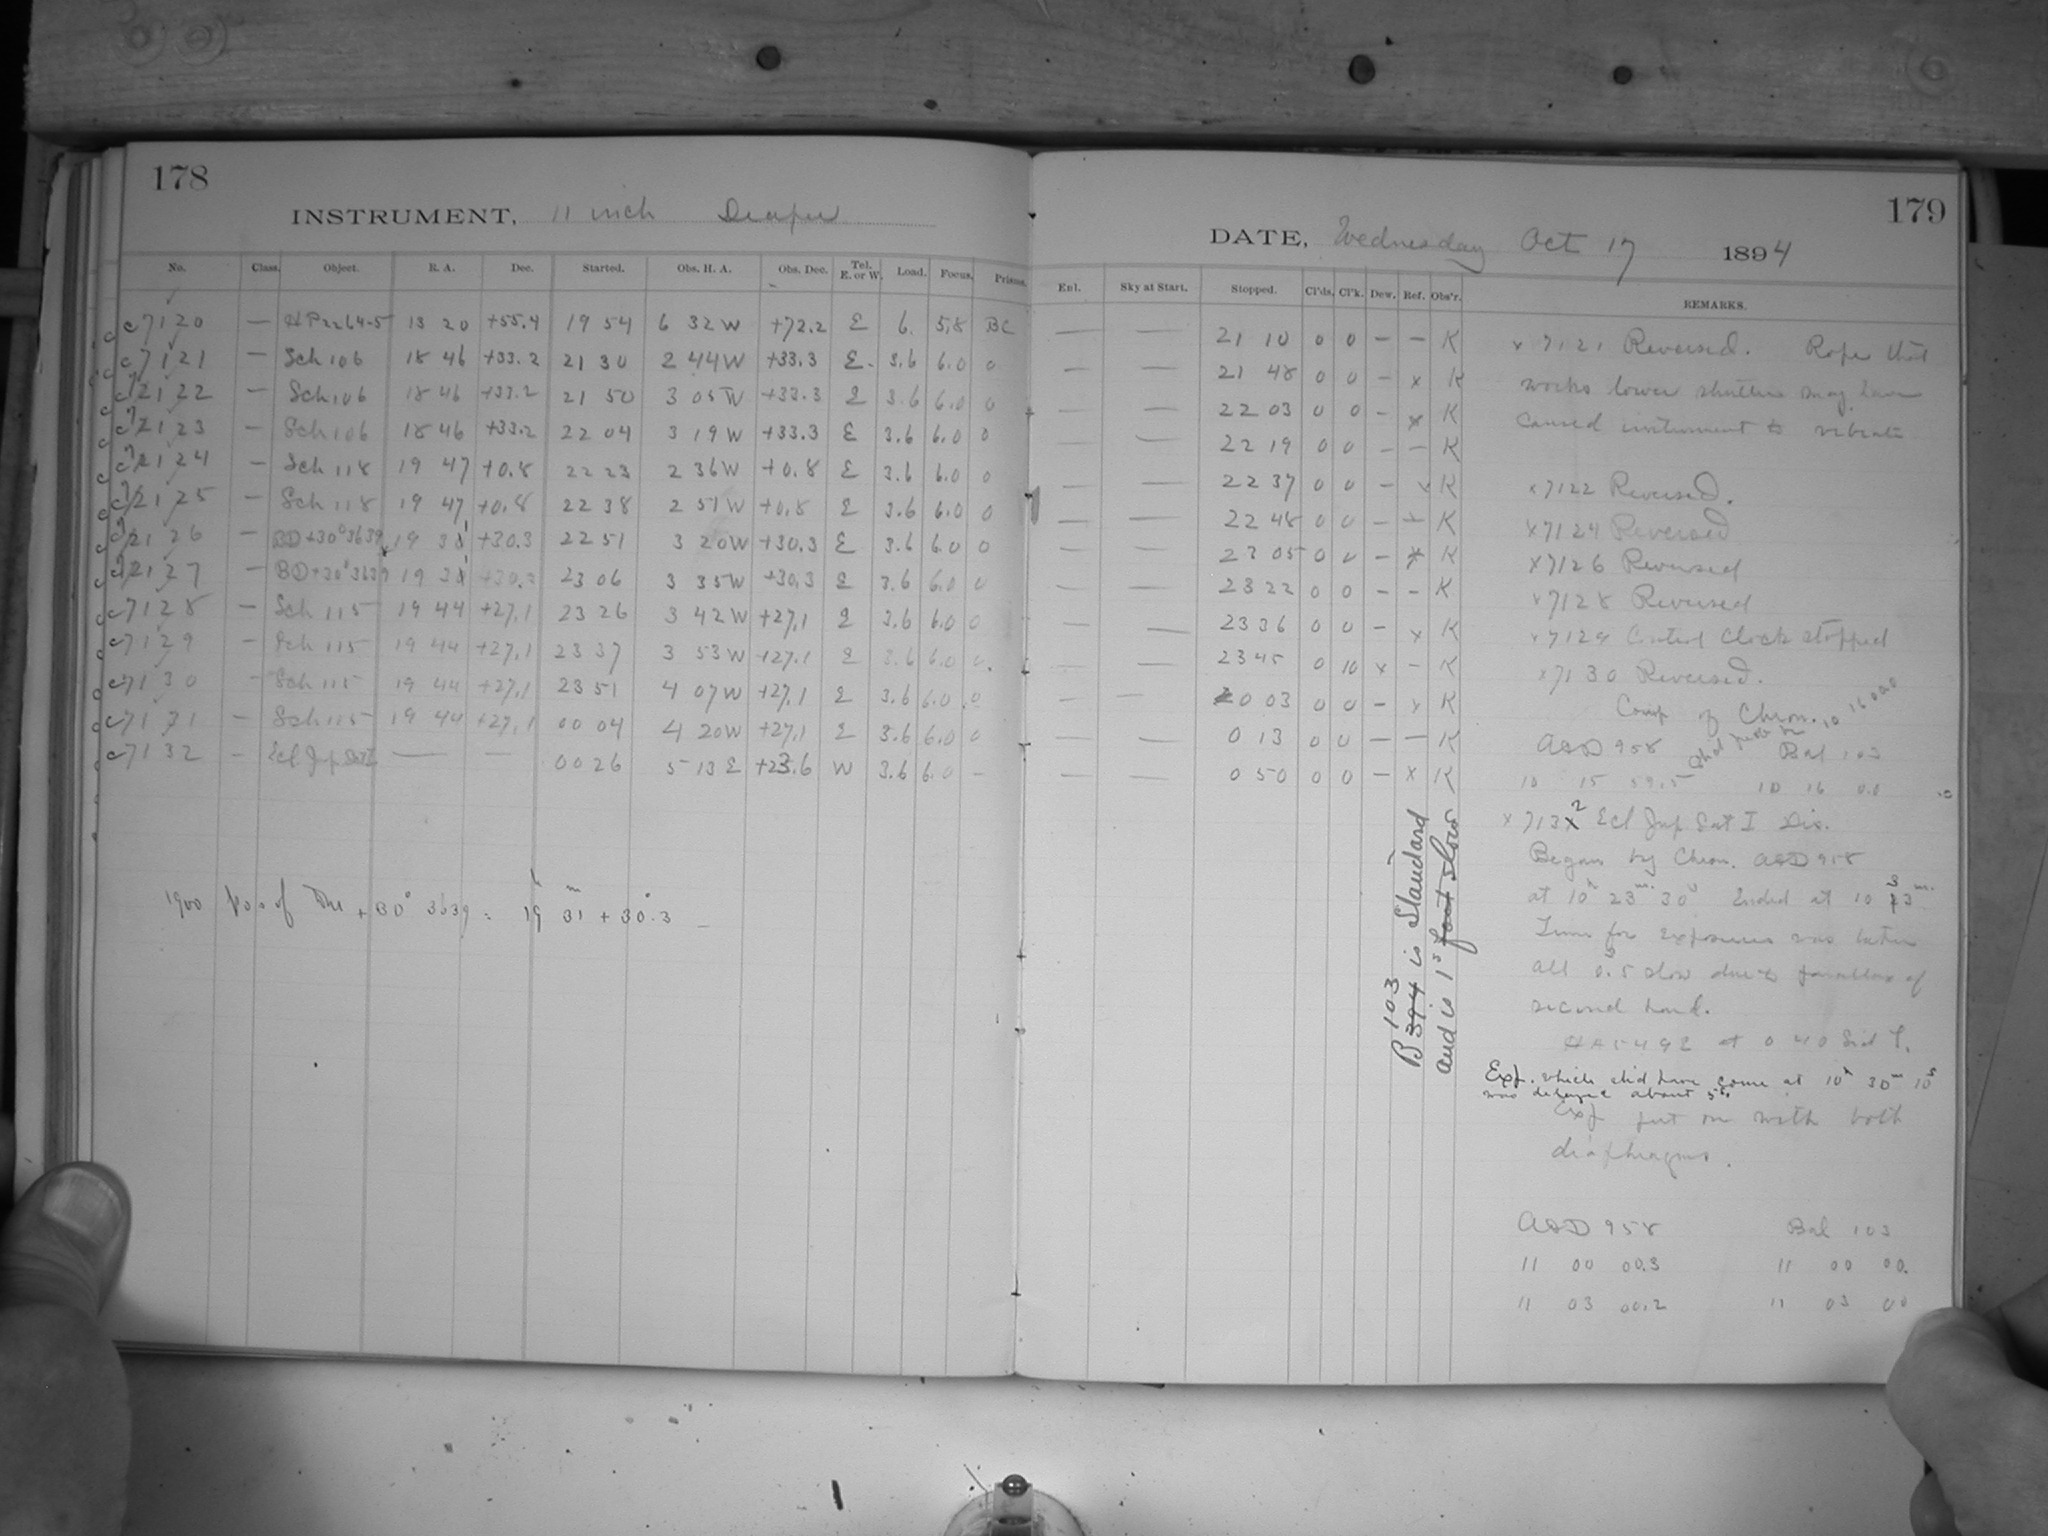 178
INSTRUMENT, 11 inch Draper
No. Class. Object. R. A. Dec. Started. Obs. H. A. Obs. Dec. Tel. E. or W. Load. Focus. Prisms.
c7120 — HP2264-5 13 20 +55.4 19 54 6 32 W +72.2 E 6. 5.8 BC
c7121 — Sch 106 18 46 +33.2 21 30 2 44 W +33.3 E. 3.6 6.0 0
c7122 — Sch 106 18 46 +33.2 21 50 3 05 W +33.3 E 3.6 6.0 0
c7123 — Sch 106 18 46 +33.2 22 04 3 19 W +33.3 E 3.6 6.0 0
c7124 — Sch 118 19 47 +0.8 22 23 2 36 W +0.8 E 3.6 6.0 0
c7125 — Sch 118 19 47 +0.8 22 38 2 51 W +0.8 E 3.6 6.0 0
c7126 — BD+30°3639 19 31 +30.3 22 51 3 20 W +30.3 E 3.6 6.0 0
c7127 — BD+30°3639 19 31 +30.3 23 06 3 35 W +30.3 E 3.6 6.0 0
c7128 — Sch 115 19 44 +27.1 23 26 3 42 W +27.1 E 3.6 6.0 0
c7129 — Sch 115 19 44 +27.1 23 37 3 53 W +27.1 E 3.6 6.0 0
c7130 — Sch 115 19 44 +27.1 23 51 4 07 W +27.1 E 3.6 6.0 0
c7131 — Sch 115 19 44 +27.1 00 04 4 20 W +27.1 E 3.6 6.0 0
c7132 — Ecl Jup Sat I — — 00 26 5 13 E +23.6 W 3.6 6.0 —
1900 pos of +BD° 3639 = 19h 31m + 30°.3
179
DATE, Wednesday Oct 17 1894
Enl. Sky at Start. Stopped. Cl'ds. Cl'k. Dew. Ref. Obs'r. REMARKS.
— — 21 10 0 0 — — K
— — 21 48 0 0 — x K
— — 22 03 0 0 — x K
— — 22 19 0 0 — — K
— — 22 37 0 0 — x K
— — 22 48 0 0 — — K
— — 23 05 0 0 — x K
— — 23 22 0 0 — — K
— — 23 36 0 0 — x K
— — 23 45 0 10 x — K
— — 0 03 0 0 — x K
— — 0 13 0 0 — — K
— — 0 50 0 0 — x K
B 103 is Standard
and is 1s slow
x 7121 Reversed. Rope that
works lower shutters may have
caused instrument to vibrate
x7122 Reversed.
x7124 Reversed
x7126 Reversed
x7128 Reversed
x7129 Control Clock stopped
x7130 Reversed.
Comp of Chron.
A&D 958 Bal 103
10 15 59.5 10 16 0.0
10 16 00.0
x 7132 Ecl Jup Sat I Dis.
Began by Chron. A&D 958
at 10h 23m 30s Ended at 10 33m.
Time for exposures was taken
all 0s.5 slow due to parallax of
second hand.
at 0 40 Sid T.
Exp. which sh'd have come at 10h 30m 10s
was delayed about 5s.
Exp put on with both
diaphragms.
A&D 958 Bal 103
11 00 00.3 11 00 00.
11 03 00.2 11 03 00